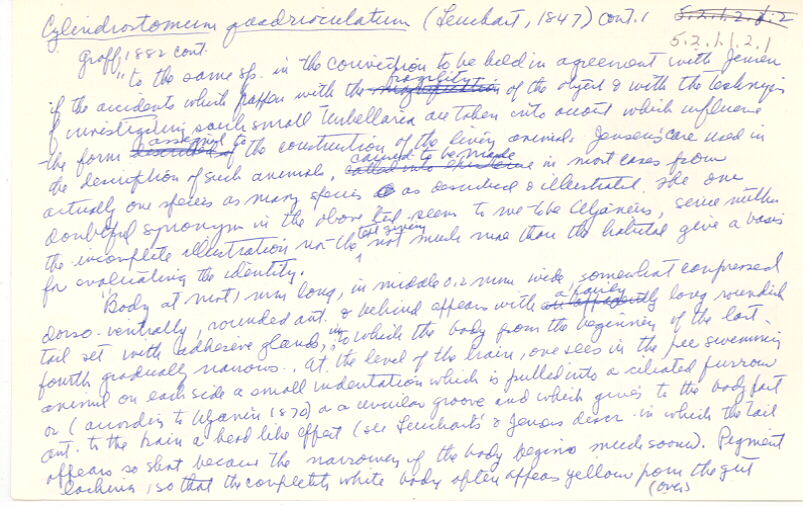 Cylindrostomum quadrioculatum (Leuckart, 1847) cont. 1 5.2.1.2.1.2
5.2.1.1.2.1
Graff, 1882 cont.
"to the same sp. in the conviction to be held in agreement with Jensen
if the accidents which happen with the fragility of the object & with the technique
of investigating such small Turbellaria are taken into account which influence
the form assigned to of the construction of the living animal. Jensen's care used in
the description of such animals, caused to be made in most cases from
actually one species as many species as described & illustrated. The one
doubtful synonym in the above list seems to me to be Uljanins, since neither
the incomplete illustration nor the text giving not much more than the habitat give a basis
for evaluating the identity.
"Body at most 1 mm long, in middle 0.2 mm wide, somewhat compressed
dorso-ventrally, rounded ant. & behind appears with a fairly long rounded
tail set with adhesive glands, in to which the body from the beginning of the last
fourth gradually narrows. At the level of the brain, one sees in the free swimming
animal on each side a small indentation which is pulled into a ciliated furrow
or (according to Uljanin 1870) as a circular groove and which gives to the body part
ant. to the brain a head like effect (see Leuckart's & Jensens descr. in which the tail
appears so short because the narrowing of the body begins much sooner). Pigment
lacking, so that the completely white body often appears yellow from the gut
(over)